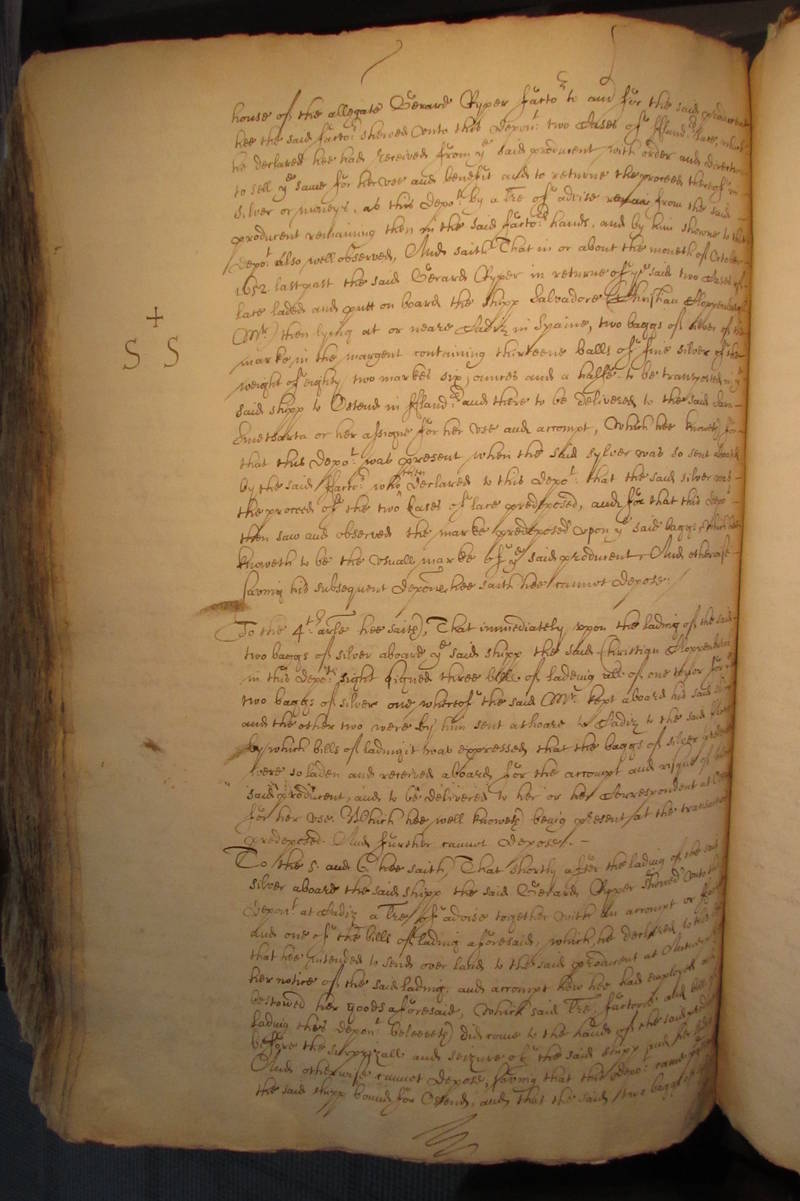 house of the allegate Gerard Ryper factor to and for the said producent
hee the said factor shewed vnto this depont two Cases of ffland:rs lace, which
he declared hee had received from ye said producent with order and direction
to sell ye same for her vse and benefit and to returne the proceed thereof in
silver or moneys, as this depot by a tre of advise from the said
producent remaining then in the said factors hands, and by him shewne to this
depot also well observed, And saith That in or about the moneth of October
1652 last past the said Gerard Ryper in returne of ye said two Cases of
lace laded and putt on board the shipp Salvadore (Christian
Mr) then lying at or neare Cadiz in Spaine, two baggs of silver of the
marke in the margent containing thirteene balls of fine silver of the
weight of eighty two markes six ounces and a halfe to be transported in ye
said shipp to Ostend in ffland:rs and there to be delivered to the said
or her assigne for her vse and accompt, Which hee knoweth for
that this depot was present when the said sylver was so sent aboard
by the said factor who then declared to this depot that the said silver was
the proceed of the two Cases of lace predeposed, and for that this depot
then saw and observed the marke predeposed vpon ye said baggs which hee
knoweth to be the vsuall marke of ye said producent, And otherwise
saving his subsequent deposicon hee saith hee cannot depose./
+
S S
To the 4th arle hee saith, That immediately vpon the lading of the said
two baggs of silver aboard ye said shipp the said Christian
in this depots sight signed three bills of lading all of one tenor for ye
two baggs of silver one whereof the said Mr kept aboard his said shipp
and the other two were by him sent ashoare to Cadiz to the said
by which bills of lading it was expressed that the baggs of silver
were so laden and received aboard for the accompt and risque of the
said producent, and to be delivered to her or her Correspondent at
for her vse. Which hee well knoweth being present at the
predeposed. And further cannot depose. -
To the 5 and 6 hee saith That shortly after the lading of the said
silver aboard the said shipp the said Gerard Ryper shewed vnto this
depont at Cadiz a tre of advise together with an accompt or
and one of the bills of lading aforesaid, which he declared to this
that hee intended to send over land to the said producent at Antwerp
her notice of the said lading, and accompt how hee had employed and
bestowed her goods aforesaid, Which said tre, factorie and bill of
lading this depont beleeveth did come to the hands of the said
before the surprizall and seizure of the said shipp
And otherwise cannot depose, saving that this depot came
the said shipp bound for Ostend, and that the said two baggs of